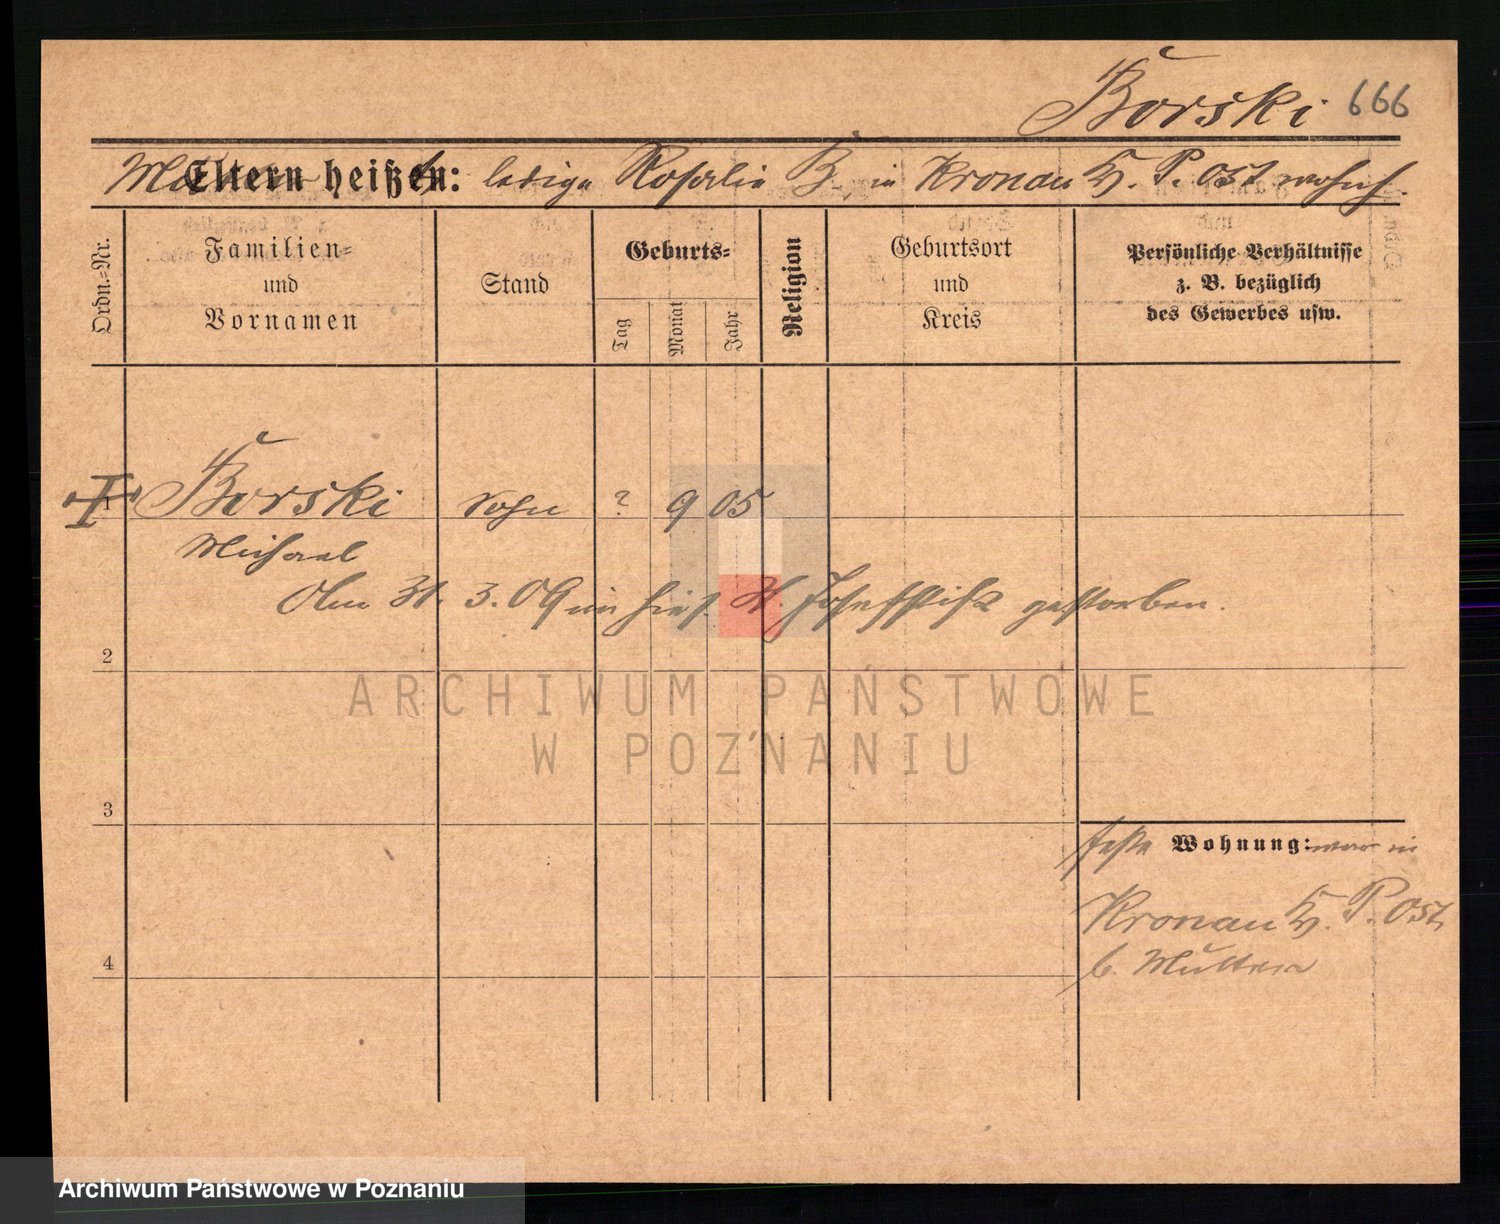 Borski 666
Eltern heißen: ledige Rosalie B. in Kronau K. P. Ost wohnh.
Ordn.-Nr.
Familien-
und
Vornamen
Stand
Geburts-
Tag
Monat
Jahr
Religion
Geburtsort
und
Kreis
Persönliche Verhältnisse
z. B. bezüglich
des Gewerbes usw.
1 Borski Sohn ? 9 05
Michael
Am 31. 3. 09 im hies. St. Josefstift gestorben.
2
ARCHIWUM PAŃSTWOWE
W POZNANIU
3
feste Wohnung: war in
Kronau K. P. Ost
b. Mutter
4
Archiwum Państwowe w Poznaniu